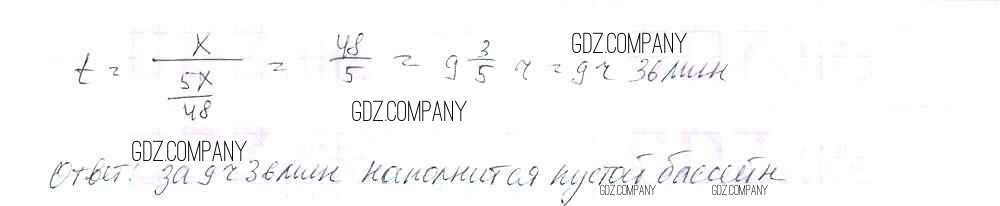 GDZ.COMPANY
t = x / (5x/48) = 48/5 = 9 3/5 ч = 9ч 36 мин
GDZ.COMPANY
GDZ.COMPANY
Ответ: за 9 ч 36 мин наполнится пустой бассейн
GDZ.COMPANY GDZ.COMPANY